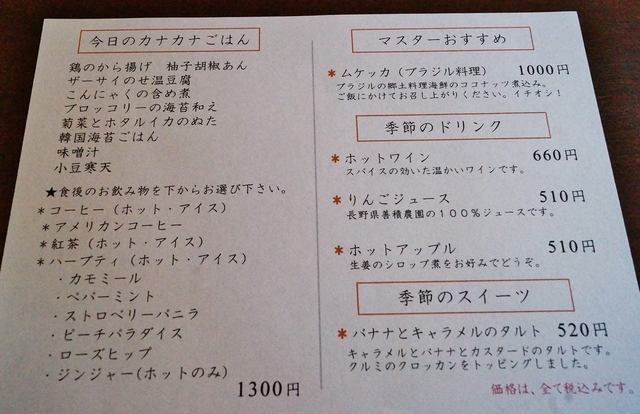 今日のカナカナごはん
鶏のから揚げ　柚子胡椒あん
ザーサイのせ温豆腐
こんにゃくの含め煮
ブロッコリーの海苔和え
菊菜とホタルイカのぬた
韓国海苔ごはん
味噌汁
小豆寒天
★食後のお飲み物を下からお選び下さい。
＊コーヒー（ホット・アイス）
＊アメリカンコーヒー
＊紅茶（ホット・アイス）
＊ハーブティ（ホット・アイス）
・カモミール
・ペパーミント
・ストロベリーバニラ
・ピーチパラダイス
・ローズヒップ
・ジンジャー(ホットのみ)
1300円
マスターおすすめ
＊ムケッカ（ブラジル料理）　1000円
ブラジルの郷土料理海鮮のココナッツ煮込み。
ご飯にかけてお召し上がりください。イチオシ！
季節のドリンク
＊ホットワイン　660円
スパイスの効いた温かいワインです。
＊りんごジュース　510円
長野県善積農園の１００％ジュースです。
＊ホットアップル　510円
生姜のシロップ煮をお好みでどうぞ。
季節のスイーツ
＊バナナとキャラメルのタルト　520円
キャラメルとバナナとカスタードのタルトです。
クルミのクロッカンをトッピングしました。
価格は、全て税込みです。